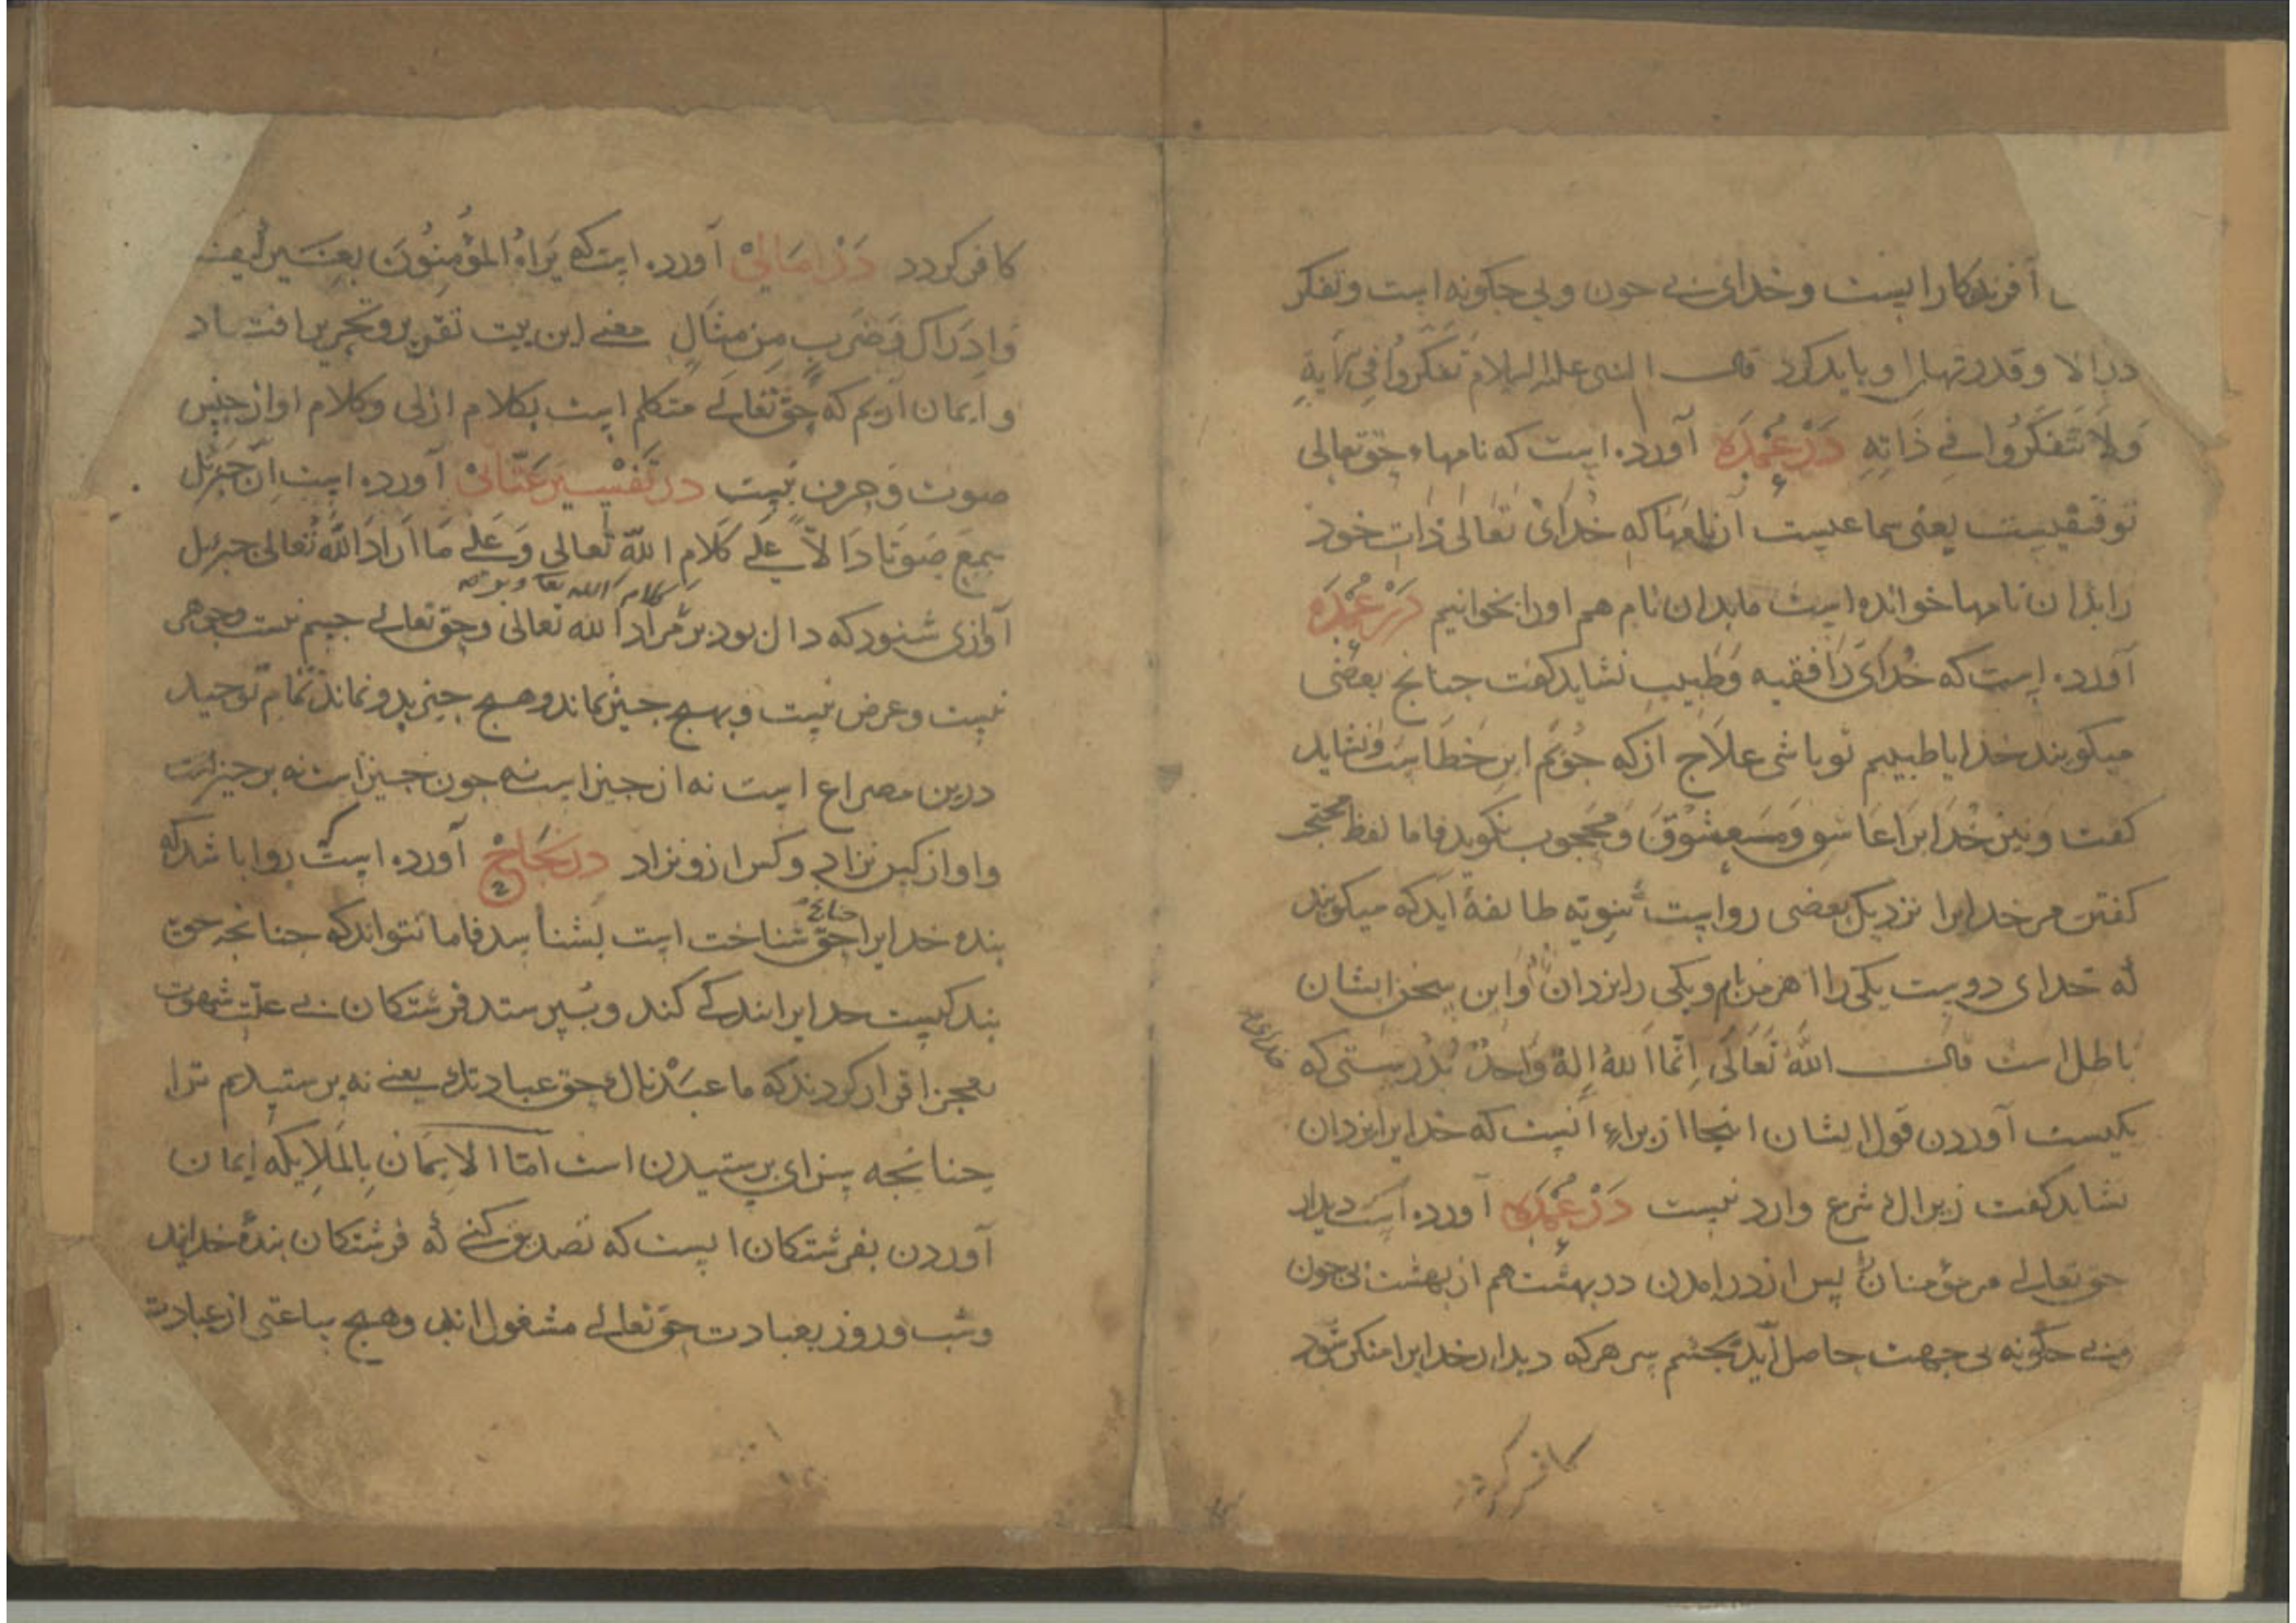 آفریدکار است و خدای بی چون و بی چکونه است و تفکر
در الا و قدرتهای او باید کرد قال النبی علیه السلام تفکروا فی
ولا تتفکروا فی ذاته در عمده آورده است که نامهاء حق تعالی
توقیفیست یعنی سماعیست آن نامها که خدای تعالی ذات خود
را بدان نامها خوانده است ما بدان نام هم او را بخوانیم در عمده
آورده است که خدای را فقیه و طبیب نشاید کفت چنانچ بعضی
میکویند خدایا طبیبم تو باشی علاج از که جویم این خطاست و نشاید
کفت و نیز خدایرا عاشق و معشوق و محجوب نکوید فاما لفظ
کفتن مر خدایرا نزدیک بعضی رواست ثنویه طایفهٔ اند که میکویند
که خدای دوست یکی را اهرمن نام و یکی را یزدان و این سخن ایشان
باطل است قال الله تعالی انما الله اله واحد بدرستی که خدای
یکیست آوردن قول ایشان اینجا از براء آنست که خدایرا یزدان
نشاید کفت زیرا که شرع وارد نیست در عمده آورده است دیدار
حق تعالی مر مؤمنان را پس از در امدن در بهشت هم از بهشت بی چون
و بی چکونه بی جهت حاصل آید بچشم سر هر که دیدار خدایرا منکر شود
کافر کردد
کافر کردد در امالی آورده است که یراه المؤمنون بغیر کیف
وادراک وضرب من مثال معنی این بیت تقریر و تحریر افتاد
و ایمان آریم که حق تعالی متکلم است بکلام ازلی و کلام او از جنس
صوت و حرف نیست در تفسیر عتابی آورده است ان جبرئل
سمع صوتا دالا علی کلام الله تعالی و علی ما اراد الله تعالی جبرئل
کلام الله تعا و بر
آوازی شنود که دال بود بر مراد الله تعالی و حق تعالی جسم نیست و جوهر
نیست و عرض نیست و بهیچ چیز نماند و هیچ چیز بدو نماند تمام توحید
درین مصراع است نه از چیز است نه چون چیز است نه بر چیز است
و او از کس نزاد و کس ازو نزاد در نجاح آورده است روا باشد که
بنده خدایرا حق شناخت است بشناسد فاما نتواند که چنانچه حق
بندکیست خدایرا بندکی کند و بپرستد فرشتکان بی علت شهوت
بعجز اقرار کردند که ما عبدناک حق عبادتک یعنی نه پرستیدیم ترا
چنانچه سزای پرستیدن است اما الایمان بالملایکه ایمان
آوردن بفرشتکان است که تصدیق کنی که فرشتکان بندهٔ خدایند
و شب و روز بعبادت حق تعالی مشغول اند و هیچ ساعتی از عبادت